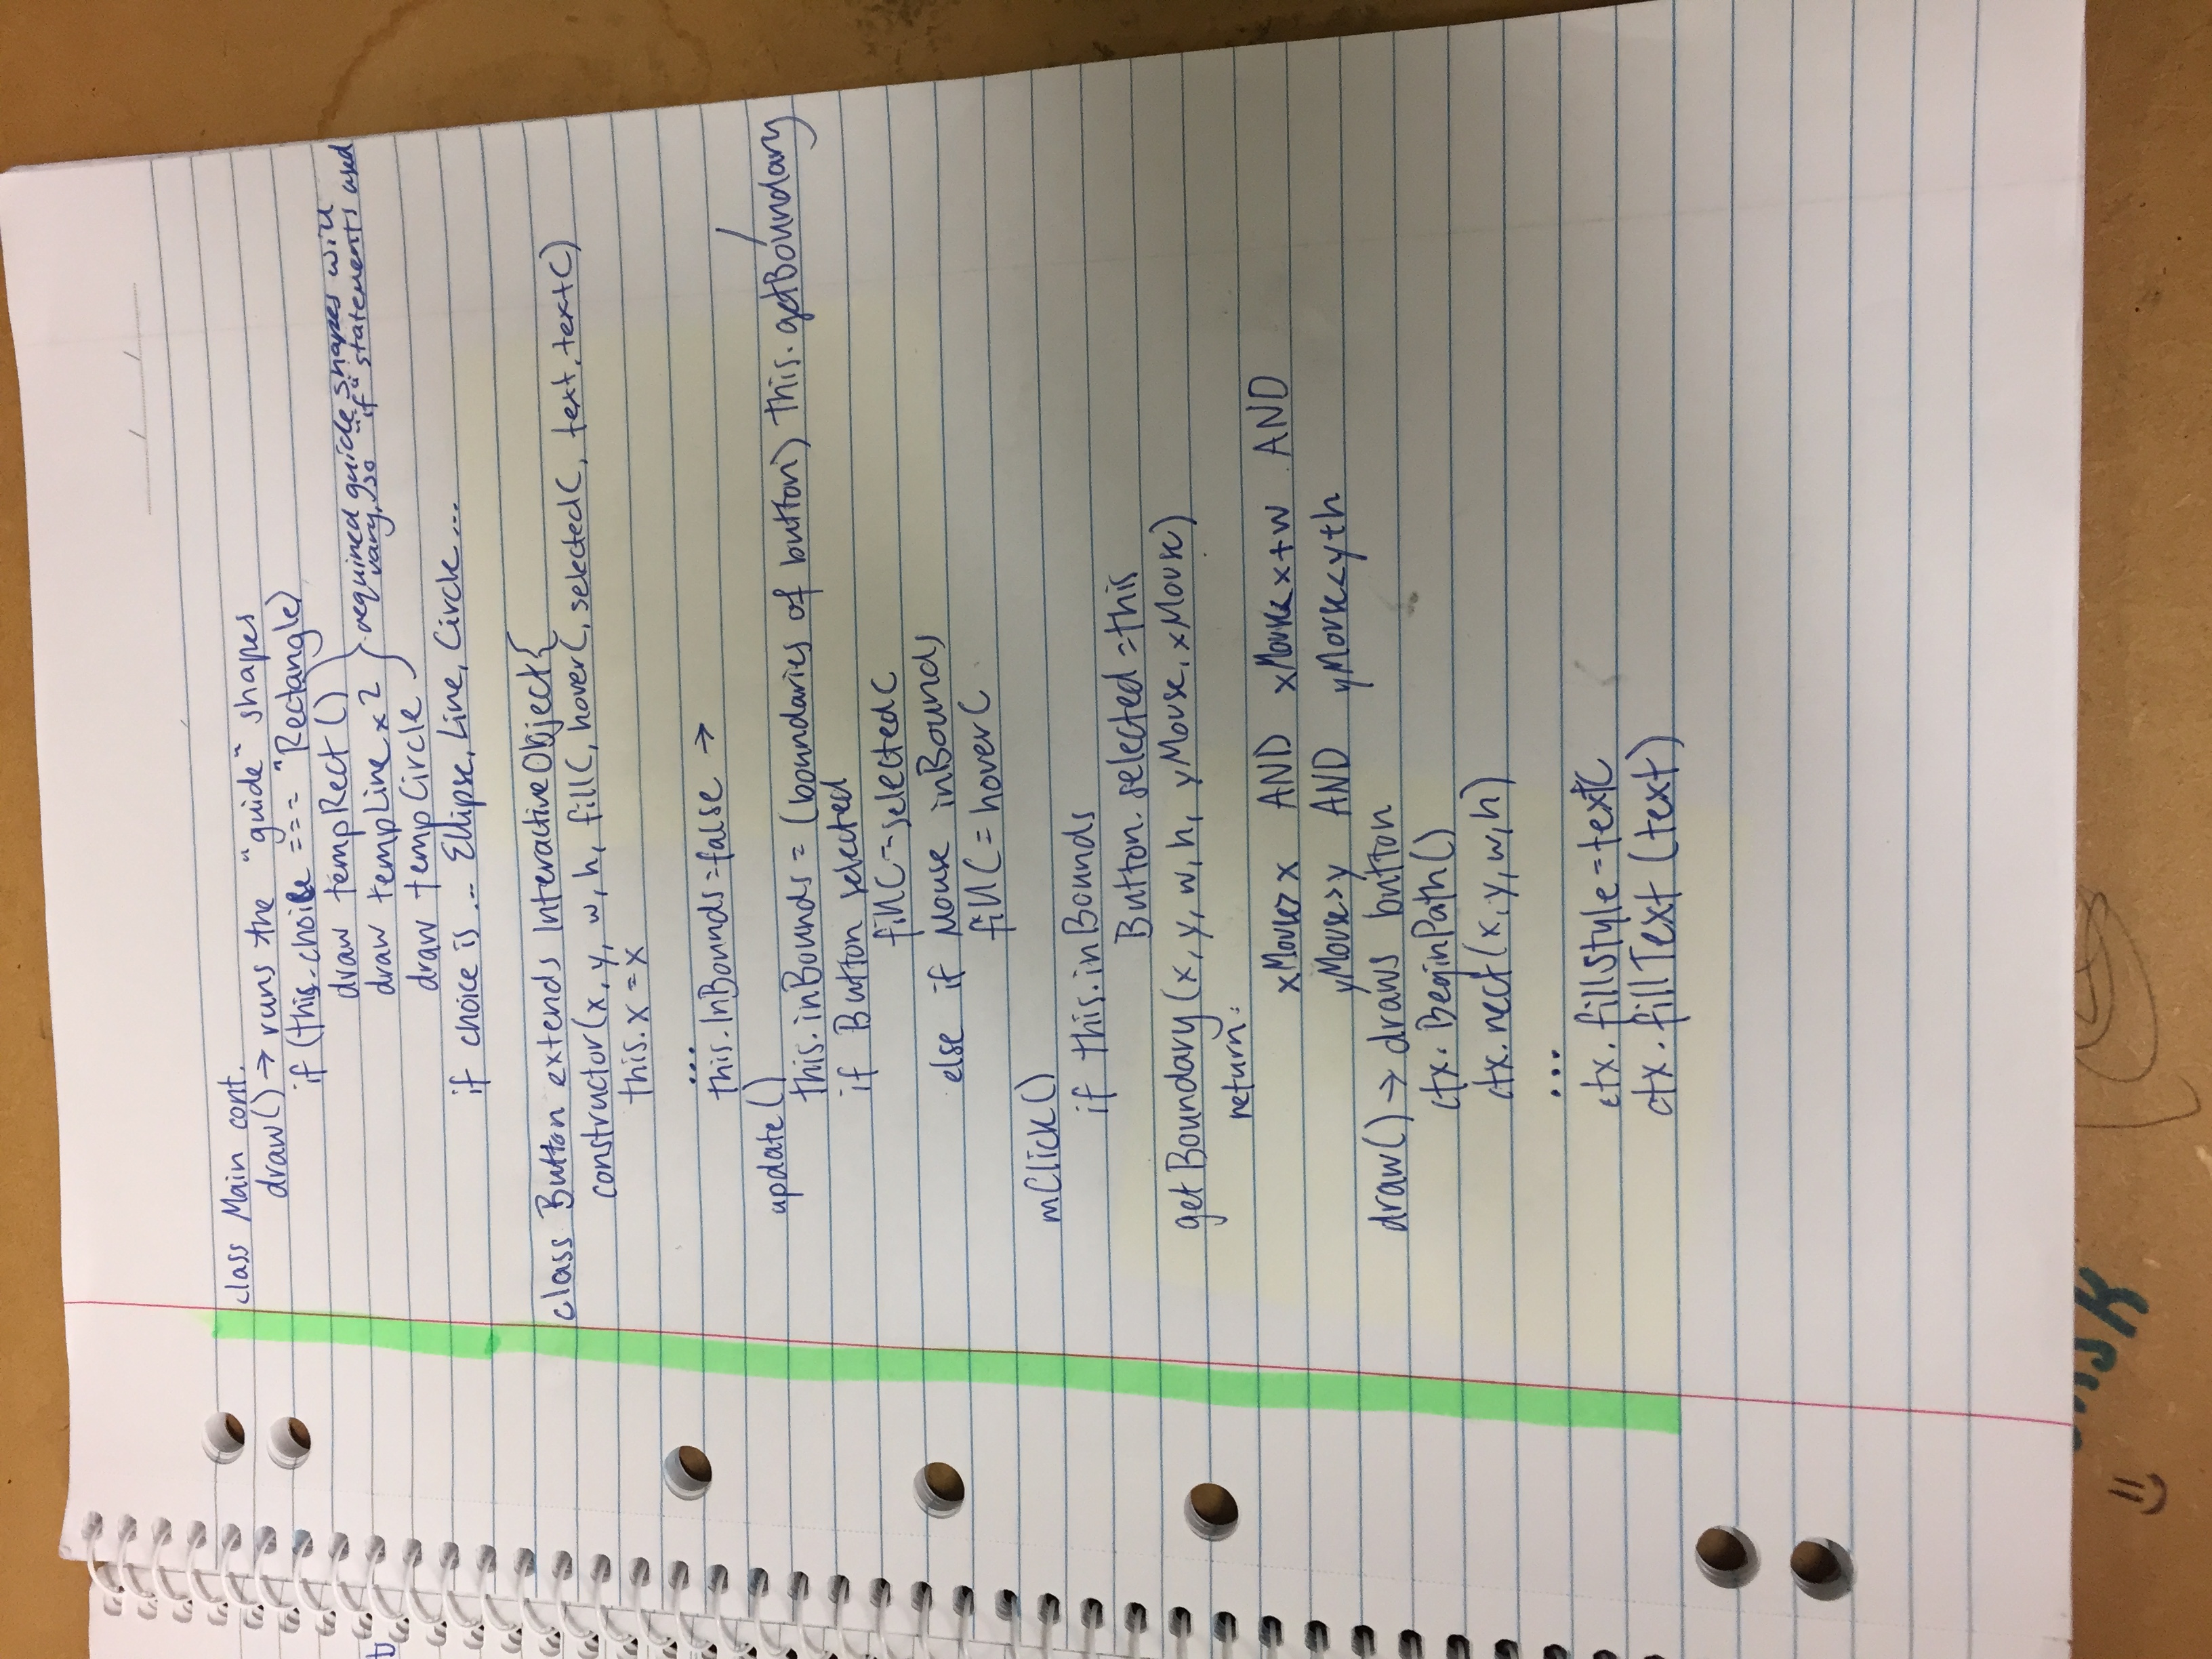 class Main cont.
draw() → runs the "guide" shapes
if (this.choice === "Rectangle)
draw tempRect ()
draw tempLine x 2
draw tempCircle
} required guide shapes will
vary, so "if" statements used
if choice is ... Ellipse, Line, Circle ...
class Button extends InteractiveObject{
constructor(x, y, w, h, fillC, hoverC, selectedC, text, textC)
this.x = x
...
this.InBounds = false →
update()
this.inBounds = (boundaries of button) this.getBoundary
if Button selected
fillC = selectedC
else if Mouse inBounds
fillC = hoverC
mClick()
if this.inBounds
Button.selected = this
getBoundary (x, y, w, h, yMouse, xMouse)
return:
xMouse > x AND xMouse < x+w AND
yMouse > y AND yMouse < y+h
draw() → draws button
ctx.BeginPath()
ctx.rect(x, y, w, h)
...
ctx.fillStyle = textC
ctx.fillText (text)